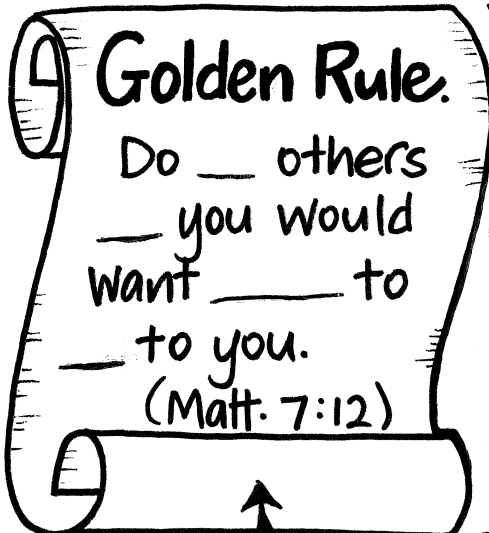 Golden Rule.
Do __ others
__ you would
want _____ to
__ to you.
(Matt. 7:12)